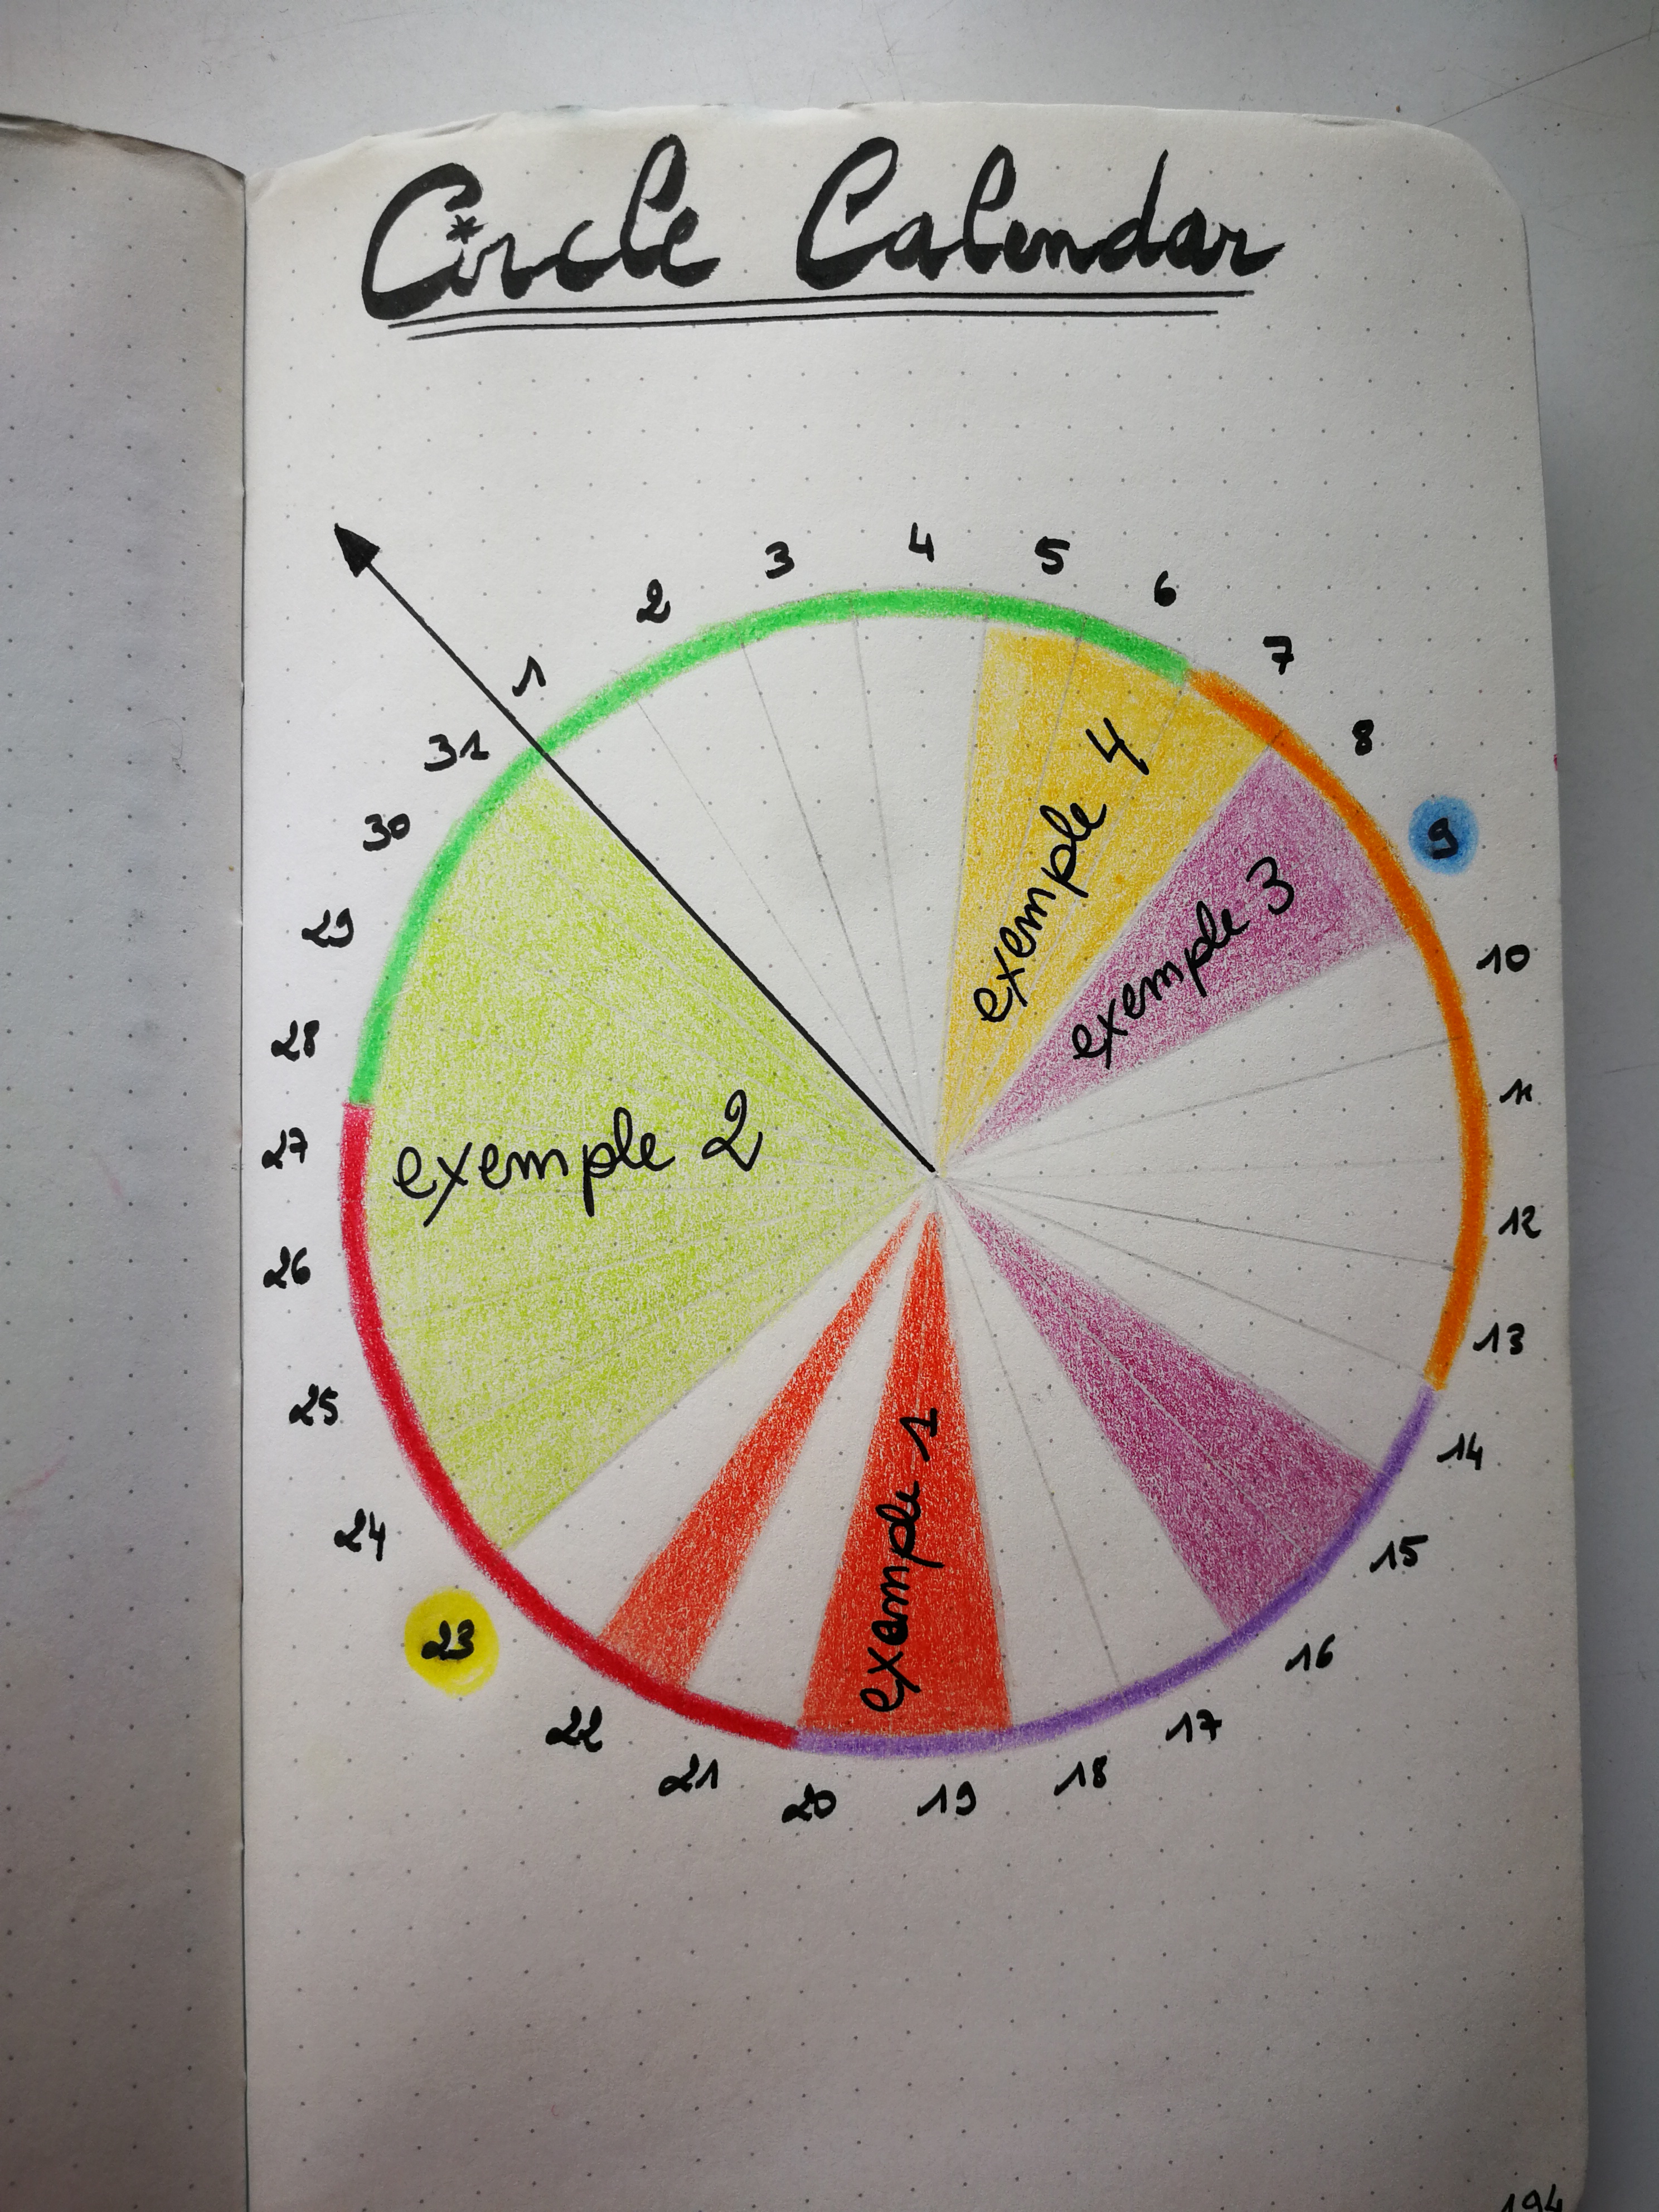 Circle Calendar
1
2
3
4
5
6
7
8
9
10
11
12
13
14
15
16
17
18
19
20
21
22
23
24
25
26
27
28
29
30
31
exemple 4
exemple 3
exemple 2
exemple 1
194